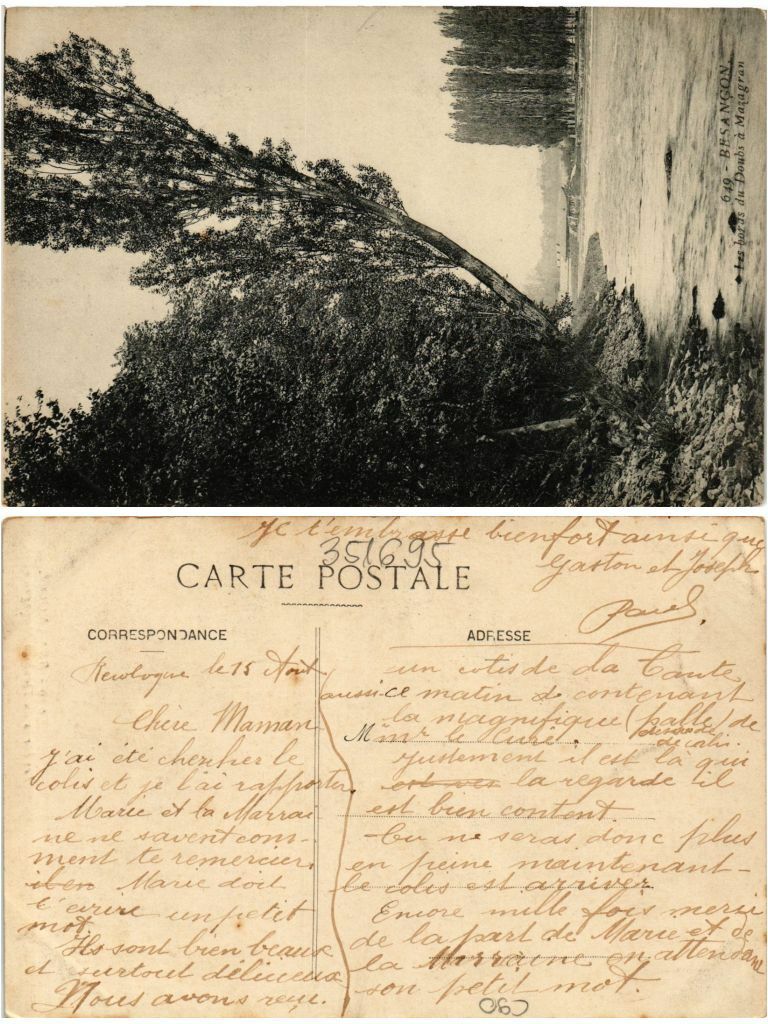 649 - BESANÇON
Les bords du Doubs à Mazagran
Je t'embrasse bien fort ainsi que
Gaston et Joseph
351695
CARTE POSTALE
CORRESPONDANCE
ADRESSE
le 15 Août
Chère Maman
j'ai été chercher le
colis et je l'ai rapporter
Marie et la Marrai
ne ne savent com-
ment te remercier.
il en Marie doit
t'écrire un petit
mot.
Ils sont bien beaux
et surtout délicieux
Nous avons reçu.
aussi ce matin
un colis de la Tante
contenant
la magnifique (palle) de
M
mr le Curé.
de calice.
justement il est là qui
la regarde il
est bien content.
Tu ne seras donc plus
en peine maintenant-
le colis est arriver.
Encore mille fois merci
de la part de Marie et de
la Marraine en attendant
son petit mot.
C90